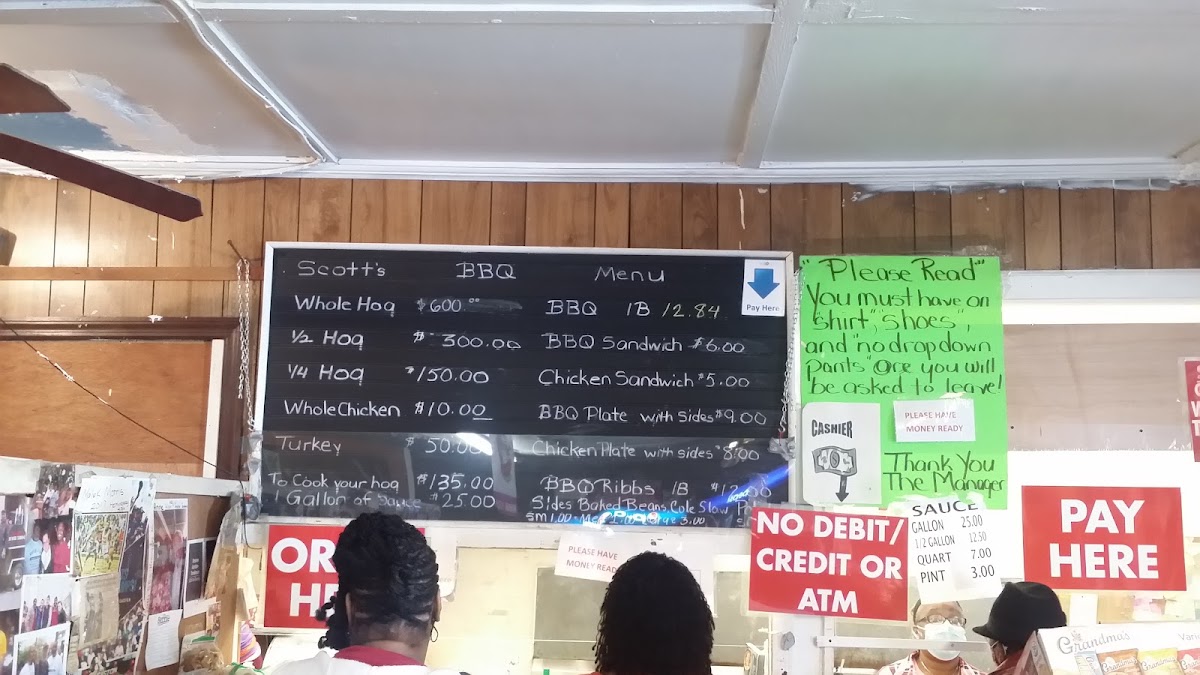 Scott's BBQ Menu
Whole Hog $600.00
1/2 Hog $300.00
1/4 Hog $150.00
Whole Chicken $10.00
Turkey $50.00
To Cook your hog $135.00
1 Gallon of Sauce $25.00
BBQ 1B 12.84
BBQ Sandwich $6.00
Chicken Sandwich $5.00
BBQ Plate with sides $9.00
Chicken Plate with sides $8.00
BBQ Ribbs 1B
Sides Baked Beans, Cole Slow
Sm 1.00 3.00
Pay Here
"Please Read"
You must have on
"shirt", "shoes",
and "no drop down
pants" Ore you will
be asked to leave!
PLEASE HAVE
MONEY READY
CASHIER
Thank You
The Manager
PLEASE HAVE
MONEY READY
NO DEBIT/
CREDIT OR
ATM
SAUCE
GALLON 25.00
1/2 GALLON 12.50
QUART 7.00
PINT 3.00
PAY
HERE
OR
HE
Grandma's